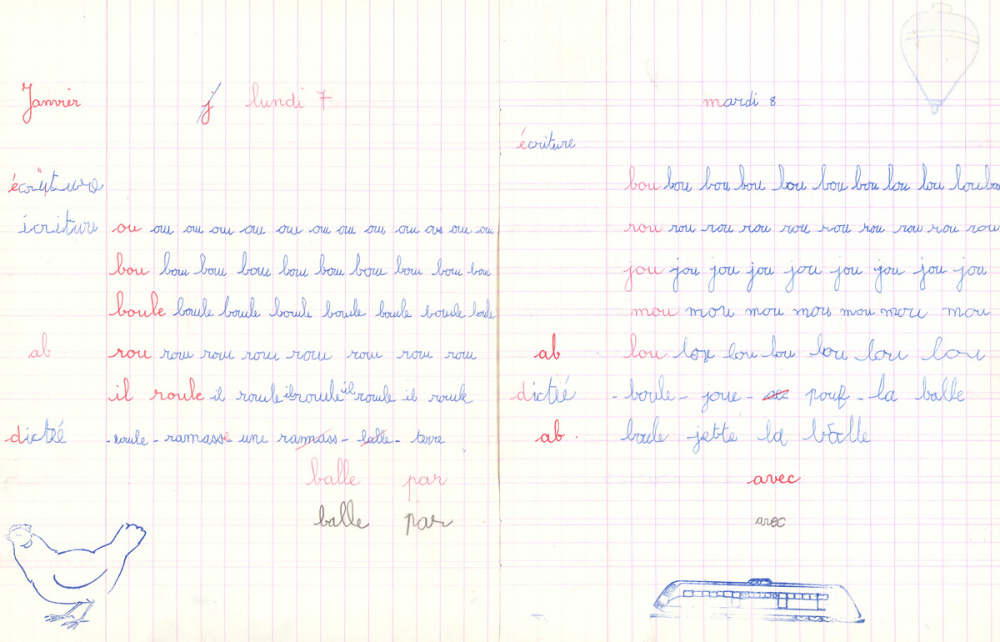 Janvier j lundi 7
écriture
écriture ou ou ou ou ou ou ou ou ou ou ou ou ou
bou bou bou bou bou bou bou bou bou bou
boule boule boule boule boule boule boule boule
ab rou rou rou rou rou rou rou rou
il roule il roule il roule il roule il roule
dicteé - roule - ramasse une - terre
balle par
balle par
mardi 8
écriture
bou bou bou bou bou bou bou bou bou bou bou
rou rou rou rou rou rou rou rou rou rou
jou jou jou jou jou jou jou jou jou
mou mou mou mou mou mou mou
ab lou lou lou lou lou lou lou
dicteé - boule - joue - pouf - la balle
ab. boule jette la balle
avec
avec